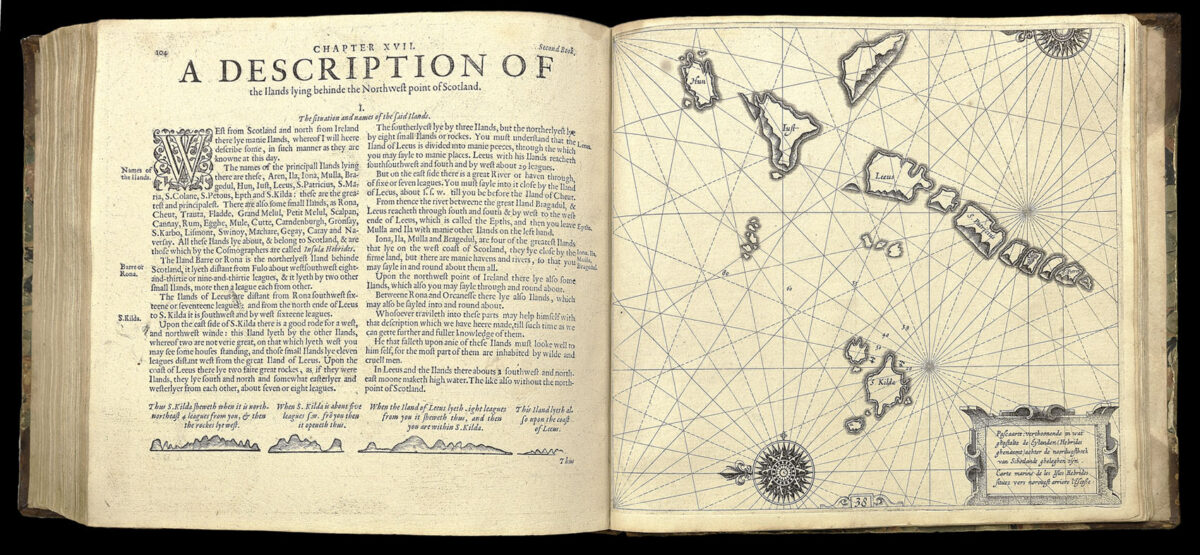 104
CHAPTER XVII.
Second Book.
A DESCRIPTION OF
the Ilands lying behinde the Northwest point of Scotland.
I.
The situation and names of the said Ilands.
WEst from Scotland and north from Ireland
there lye manie Ilands, whereof I will heere
describe some, in such manner as they are
knowne at this day.
Names of
the Ilands.
The names of the principall Ilands lying
there are these, Aren, Ila, Iona, Mulla, Bra-
gedul, Hun, Iust, Leeus, S.Patricius, S.Ma-
ria, S.Colane, S.Petous, Epth and S.Kilda: these are the grea-
test and principalest. There are also some small Ilands, as Rona,
Cheut, Trauta, Fladde, Grand Melul, Petit Melul, Scalpan,
Cannay, Rum, Egghe, Mule, Cutte, Camdenburgh, Gronsay,
S.Karbo, Lismont, Swinoy, Machare, Gegay, Caray and Na-
versay. All these Ilands lye about, & belong to Scotland, & are
those which by the Cosmographers are called Insulæ Hebrides.
Barre or
Rona.
The Iland Barre or Rona is the northerlyest Iland behinde
Scotland, it lyeth distant from Fulo about westsouthwest eight-
and-thirtie or nine-and-thirtie leagues, & it lyeth by two other
small Ilands, more then a league each from other.
The Ilands of Leeus are distant from Rona southwest six-
teene or seventeene leagues and from the north ende of Leeus
to S. Kilda it is southwest and by west sixteene leagues.
S.Kilda.
Upon the east side of S.Kilda there is a good rode for a west,
and northwest winde: this Iland lyeth by the other Ilands,
whereof two are not verie great, on that which lyeth west you
may see some houses standing, and those small Ilands lye eleven
leagues distant west from the great Iland of Leeus. Upon the
coast of Leeus there lye two faire great rockes, as if they were
Ilands, they lye south and north and somewhat easterlyer and
westerlyer from each other, about seven or eight leagues.
The southerlyest lye by three Ilands, but the northerlyest lye
by eight small Ilands or rockes. You must understand that the
Iland of Leeus is divided into manie peeces, through the which
you may sayle to manie places. Leeus with his Ilands reacheth
southsouthwest and south and by west about 29 leagues.
But on the east side there is a great River or haven through,
of fixe or seven leagues. You must sayle into it close by the Iland
of Leeus, about f.f.w. till you be before the Iland of Cheut.
From thence the rivet betweene the great Iland Bragadul, &
Leeus reacheth through south and south & by west to the west
ende of Leeus, which is called the Epths, and then you leave
Mulla and Ila with manie other Ilands on the left hand.
Epths
Iona, Ila, Mulla and Bregedul, are four of the greatest Ilands
that lye on the west coast of Scotland, they lye close by the
firme land, but there are manie havens and rivers, so that you
may sayle in and round about them all.
Iona, Ila,
Mulla,
Bragedul
Upon the northwest point of Ireland there lye also some
Ilands, which also you may sayle through and round about.
Betweene Rona and Orcanesse there lye also Ilands, which
may also be sayled into and round about.
Whosoever travileth into these parts may help himself with
that description which we have heere made, till such time as we
can gette further and fuller knowledge of them.
He that falleth upon anie of these Ilands must looke well to
him self, for the most part of them are inhabited by wilde and
cruell men.
In Leeus and the Ilands there abouts a southwest and north-
east moone maketh high water. The like also without the north-
point of Scotland.
Thus S.Kilda sheweth when it is north-
northeast 4 leagues from you, & then
the rockes lye west.
When S. Kilda is about five
leagues f.w. frō you then
it openeth thus.
When the Iland of Leeus lyeth eight leagues
from you it sheweth thus, and then
you are within S.Kilda.
This Iland lyeth al-
so upon the coast
of Leeus.
Thus
Hun
Iust
Leeus
S. Kilda
60
Pascaarte vertoonende in wat
ghestalte de Eylanden (Hebrides
ghenaemt) achter de noortwesthoek
van Schotlandt ghelegen zijn.
Carte marine de les Isles Hebrides
situees vers noroüest arriere l'Escosse
38